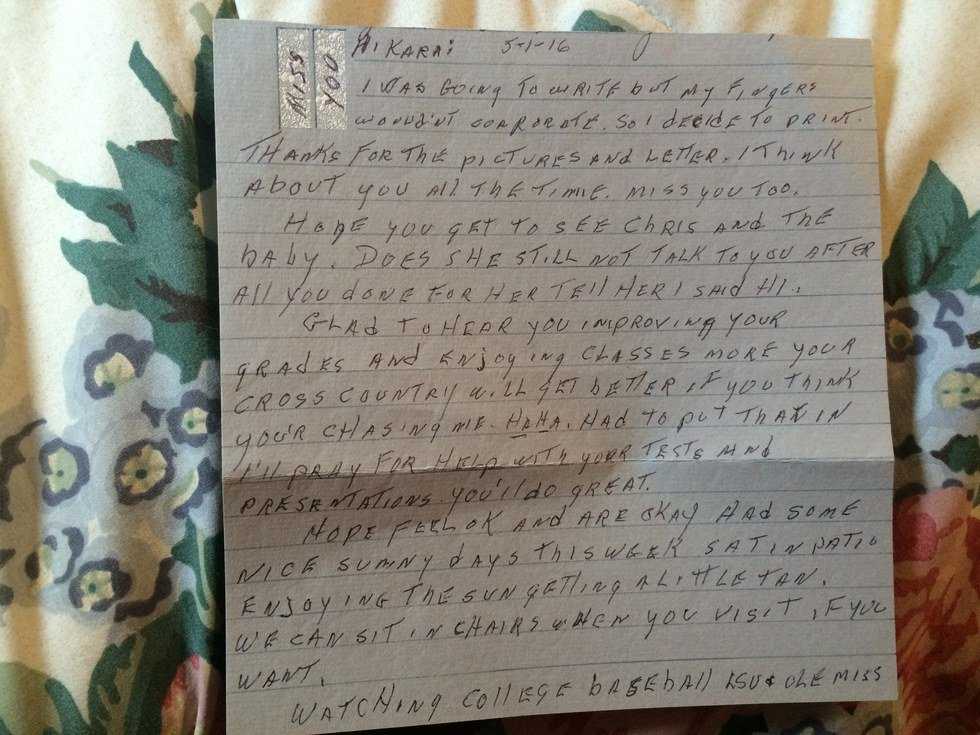 MISS
YOU
HI KARA: 5-1-16
I WAS GOING TO WRITE bUT MY FINGERS
WOULDN'T CORPORATE. SO I DECIDE TO PRINT.
THANKS FOR THE PICTURES AND LETTER. I THINK
ABOUT YOU All THE TIME. MISS YOU TOO.
HOPE YOU GET TO SEE CHRIS AND THE
bAby. DOES SHE STILL NOT TALK TO YOU AFTER
All YOU dONE FOR HER TEll HER I SAId HI.
GLAd TO HEAR YOU IMPROVING YOUR
GRADES AND ENjOYING CLASSES MORE YOUR
CROSS COUNTRY WILL GET bETTER, IF YOU THINK
YOU'R CHASING ME. HAHA. HAD TO PUT THAT IN
I'll PRAY FOR HELP WITH YOUR TESTS ANd
PRESENTATIONS. YOU'll dO GREAT.
HOPE FEEL OK AND ARE OKAY HAD SOME
NICE SUNNY dAYS THIS WEEK SAT IN PATIO
ENJOYING THE SUN GETTING A LITTLE TAN.
WE CAN SIT IN CHAIRS WHEN YOU VISIT, IF YOU
WANT.
WATCHING COLLEGE bASEbAll LSU & OLE MISS